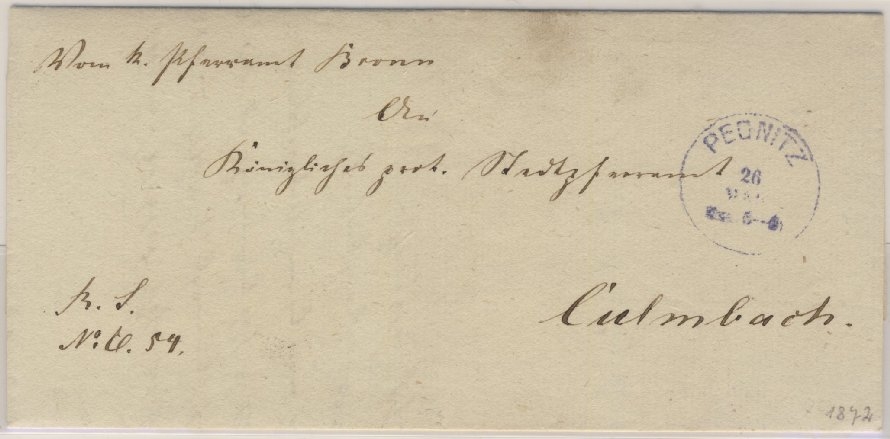 Vom k. Pfarramt Bronn
An
Königliches prot. Stadtpfarramt
PEGNITZ
26
R. S.
No. 54.
Culmbach.
1872